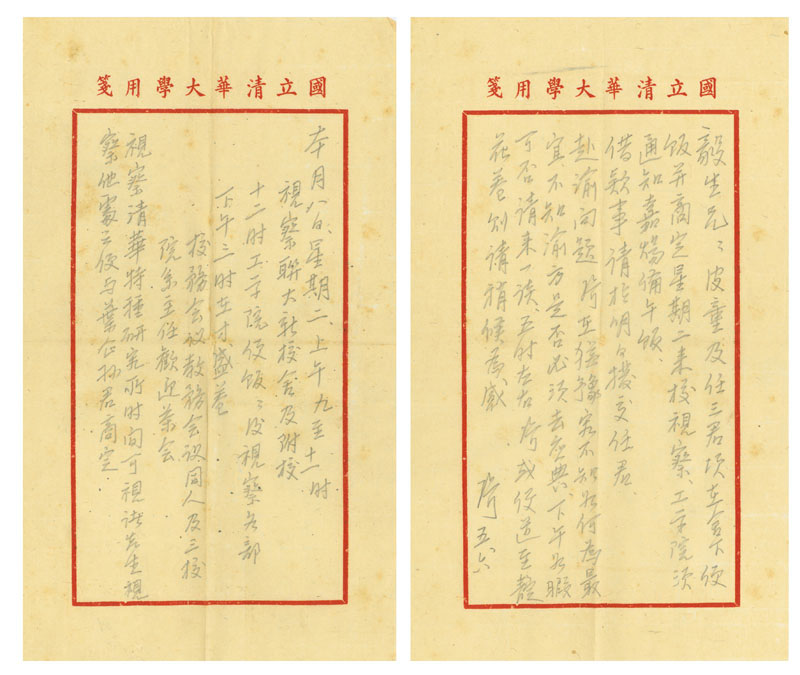 國立清華大學用箋
毅生兄:皮童及任三君頃在舍下便
飯并商定星期二来校視察、工学院須
通知嘉煬備午飯、
借欵事請於明日撥交任君、
赴渝问题 琦在猶豫 实不知如何為最
宜不知渝方是否必須去 下午如暇
可否請来一談、五时左右 琦或便道至靛
花巷则請稍候為感
琦 五、六
國立清華大學用箋
本月八日、星期二、上午九至十一时
視察聯大新校舍及附校
十二时工学院便飯:後視察各部
下午三时在才盛巷
校務会议教務会议同人及三校
院系主任歡迎茶会
視察清華特種研究所时间可視諸先生視
察他處之便与葉企孙君商定